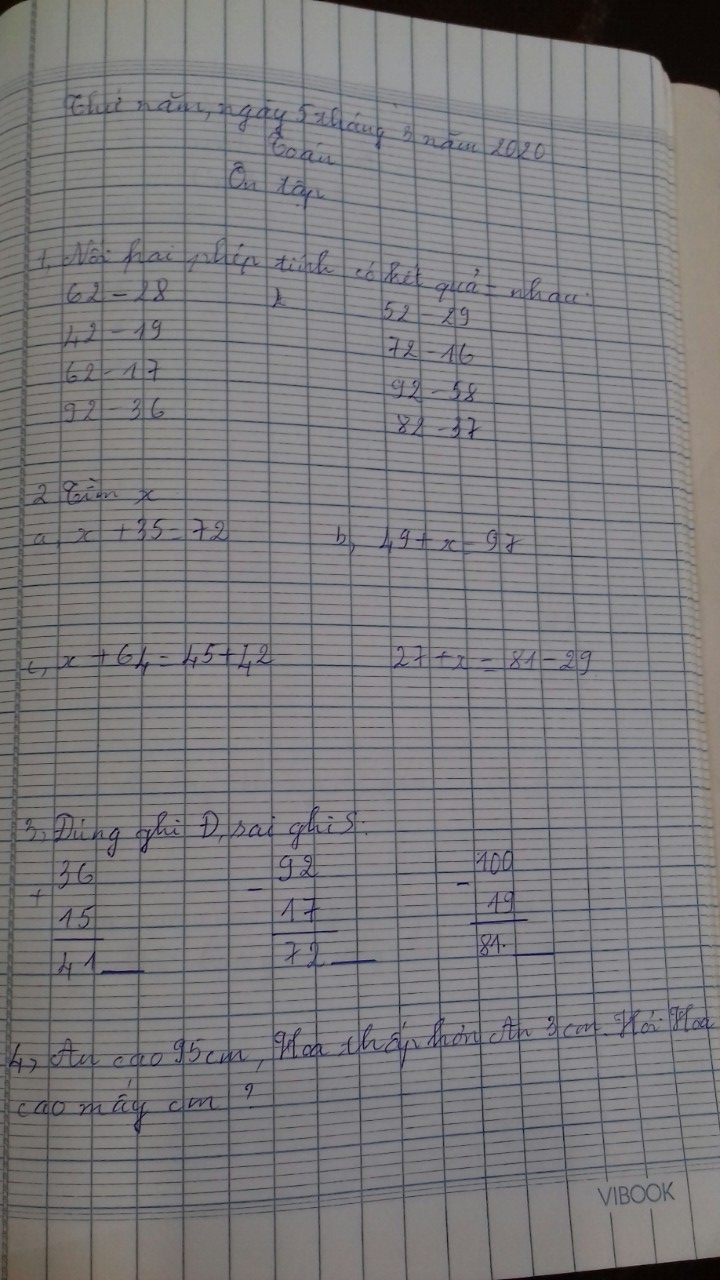 Thứ năm, ngày 5 tháng 3 năm 2020
Toán
Ôn tập
1, Nối hai phép tính có kết quả = nhau.
62 - 28 52 - 29
42 - 19 72 - 16
62 - 17 92 - 58
92 - 36 82 - 37
2 Tìm x
a, x + 35 = 72 b, 49 + x = 97
c, x + 64 = 45 + 42 27 + x = 81 - 29
3, Đúng ghi Đ, sai ghi S:
36 92 100
+ - -
15 17 19
41 __ 72 __ 81. __
4, An cao 95cm, Hoa thấp hơn An 3 cm. Hỏi Hoa
cao mấy cm ?
VIBOOK